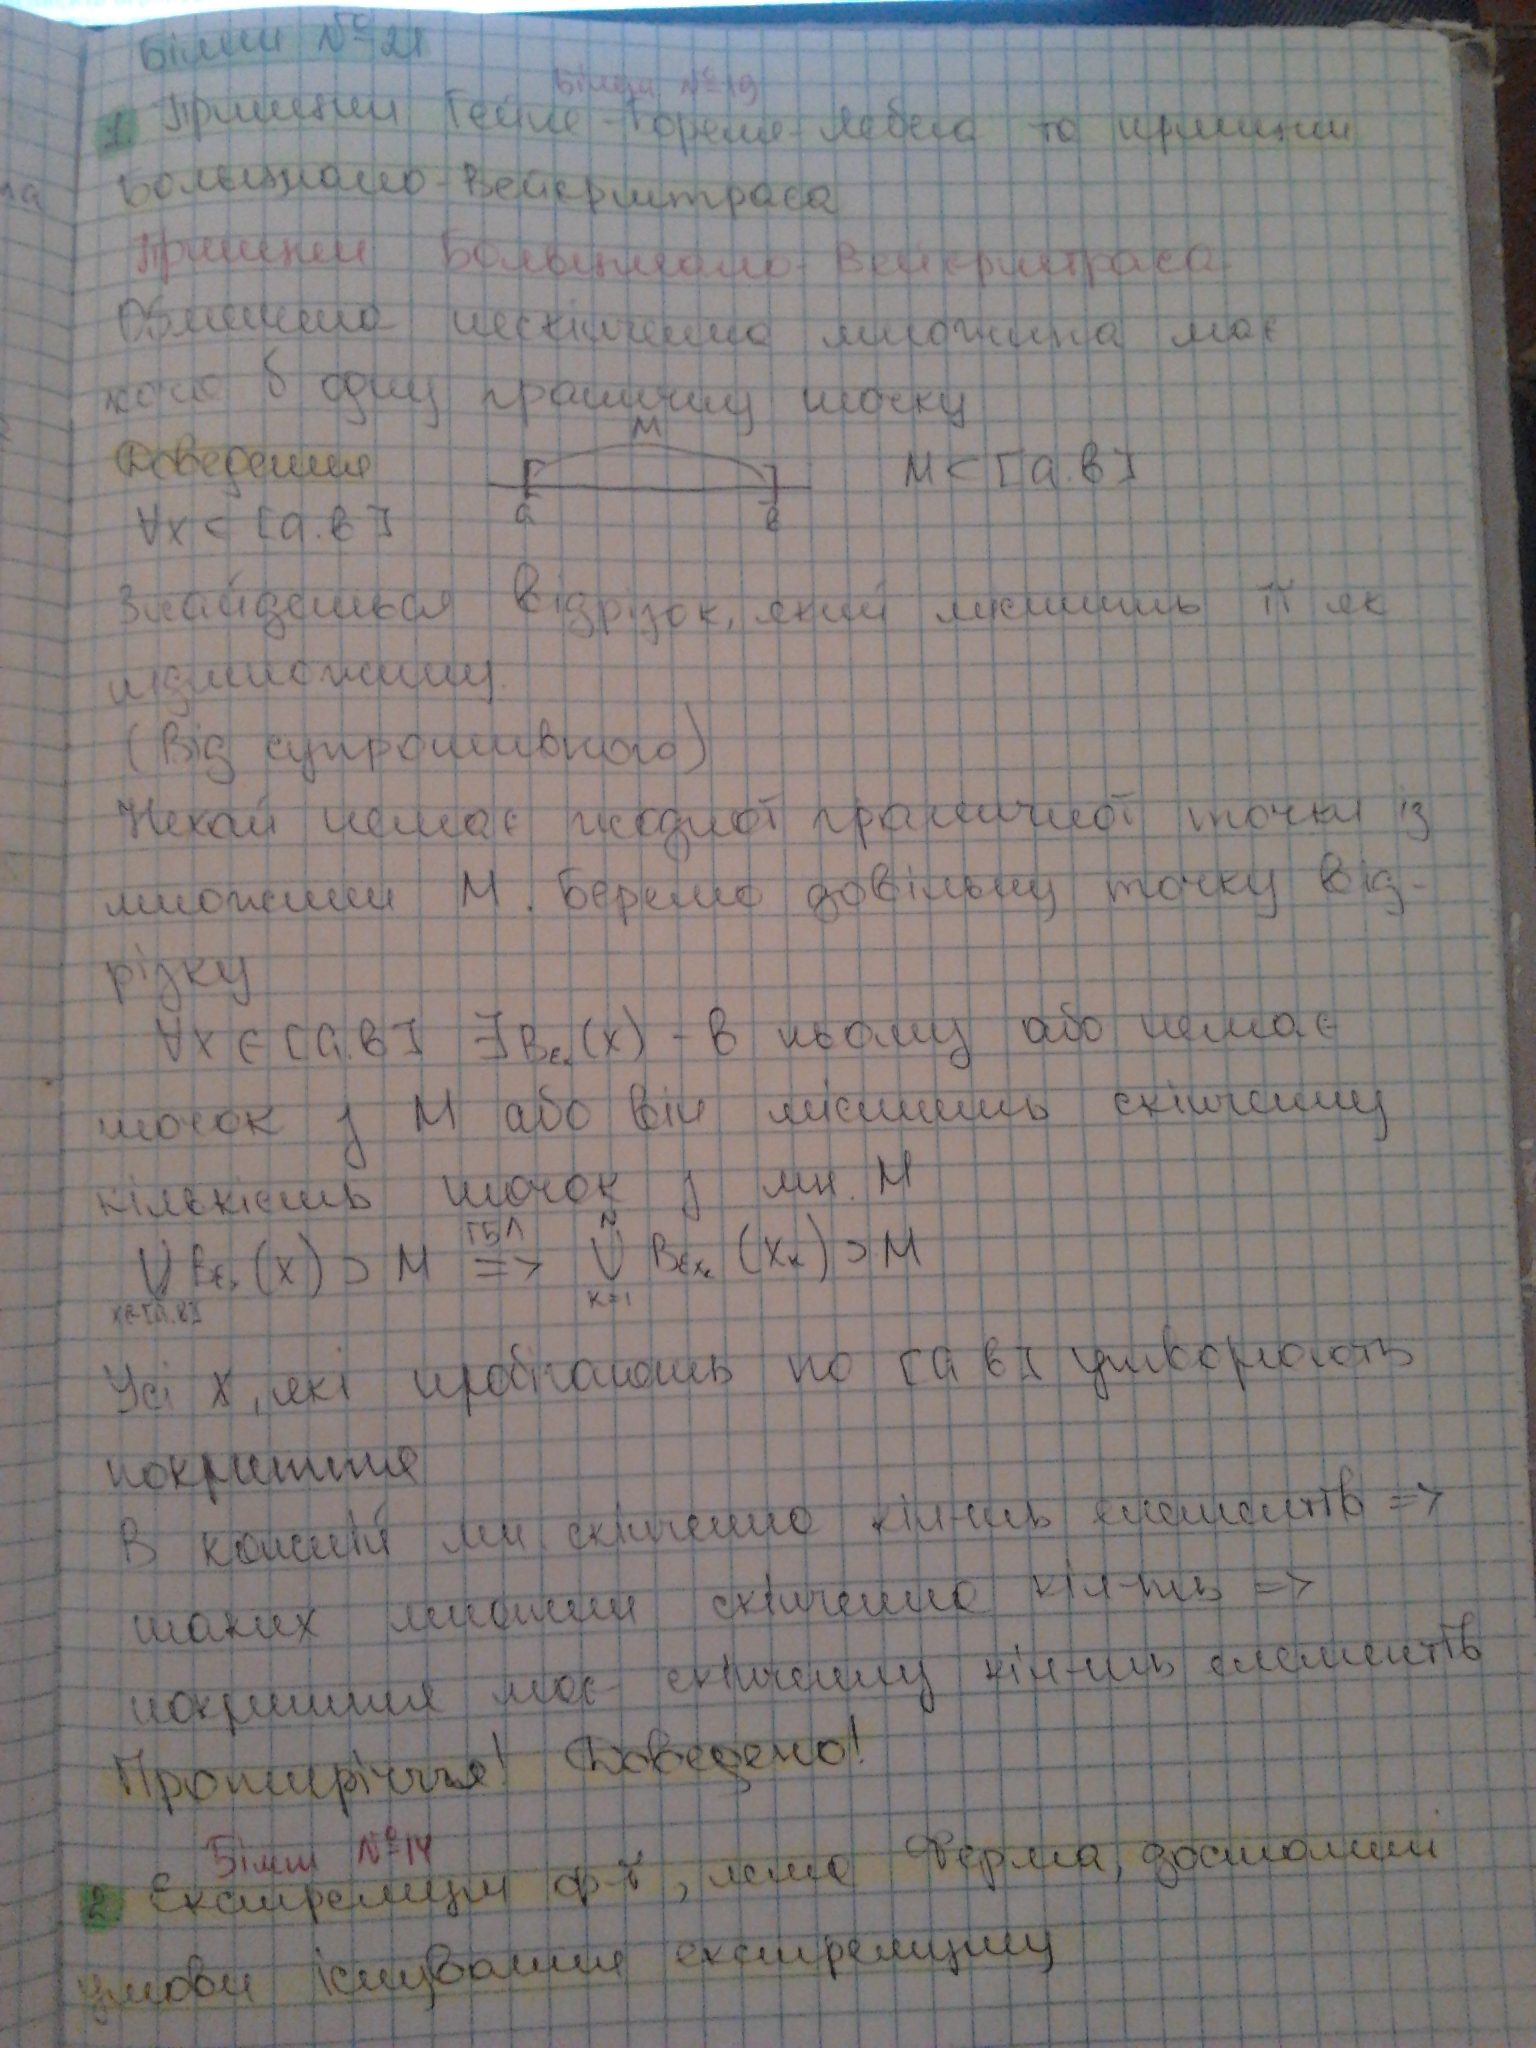 Білет №21
Білет №19
1. Принцип Гейне-Бореля-Лебега та принцип
Больцмано-Вейєрштраса
Принцип Больцмано-Вейєрштраса
Обмежена нескінченна множина має
хоча б одну граничну точку
Доведення M M ⊂ [a.b]
∀x ⊂ [a.b] a b
Знайдеться відрізок, який містить її як
підмножину.
(Від супротивного)
Нехай немає жодної граничної точки із
множини M. Беремо довільну точку від-
різку
∀x ∈ [a.b] ∃Bεₓ(x) - в ньому або немає
точок з M або він містить скінченну
кількість точок з мн. M
∪ Bεₓ(x) ⊃ M ГБЛ => N ∪ Bεxₖ (xₖ) ⊃ M
x∈[a.b] k=1
Усі x, які пробігають по [a b] утворюють
покриття
В кожній мн. скінченна кіл-ть елементів =>
таких множин скінченна кіл-ть =>
покриття має скінченну кіл-ть елементів
Протиріччя! Доведено!
Білет №14
2. Екстремуми ф-ї, лема Ферма, достатні
умови існування екстремуму